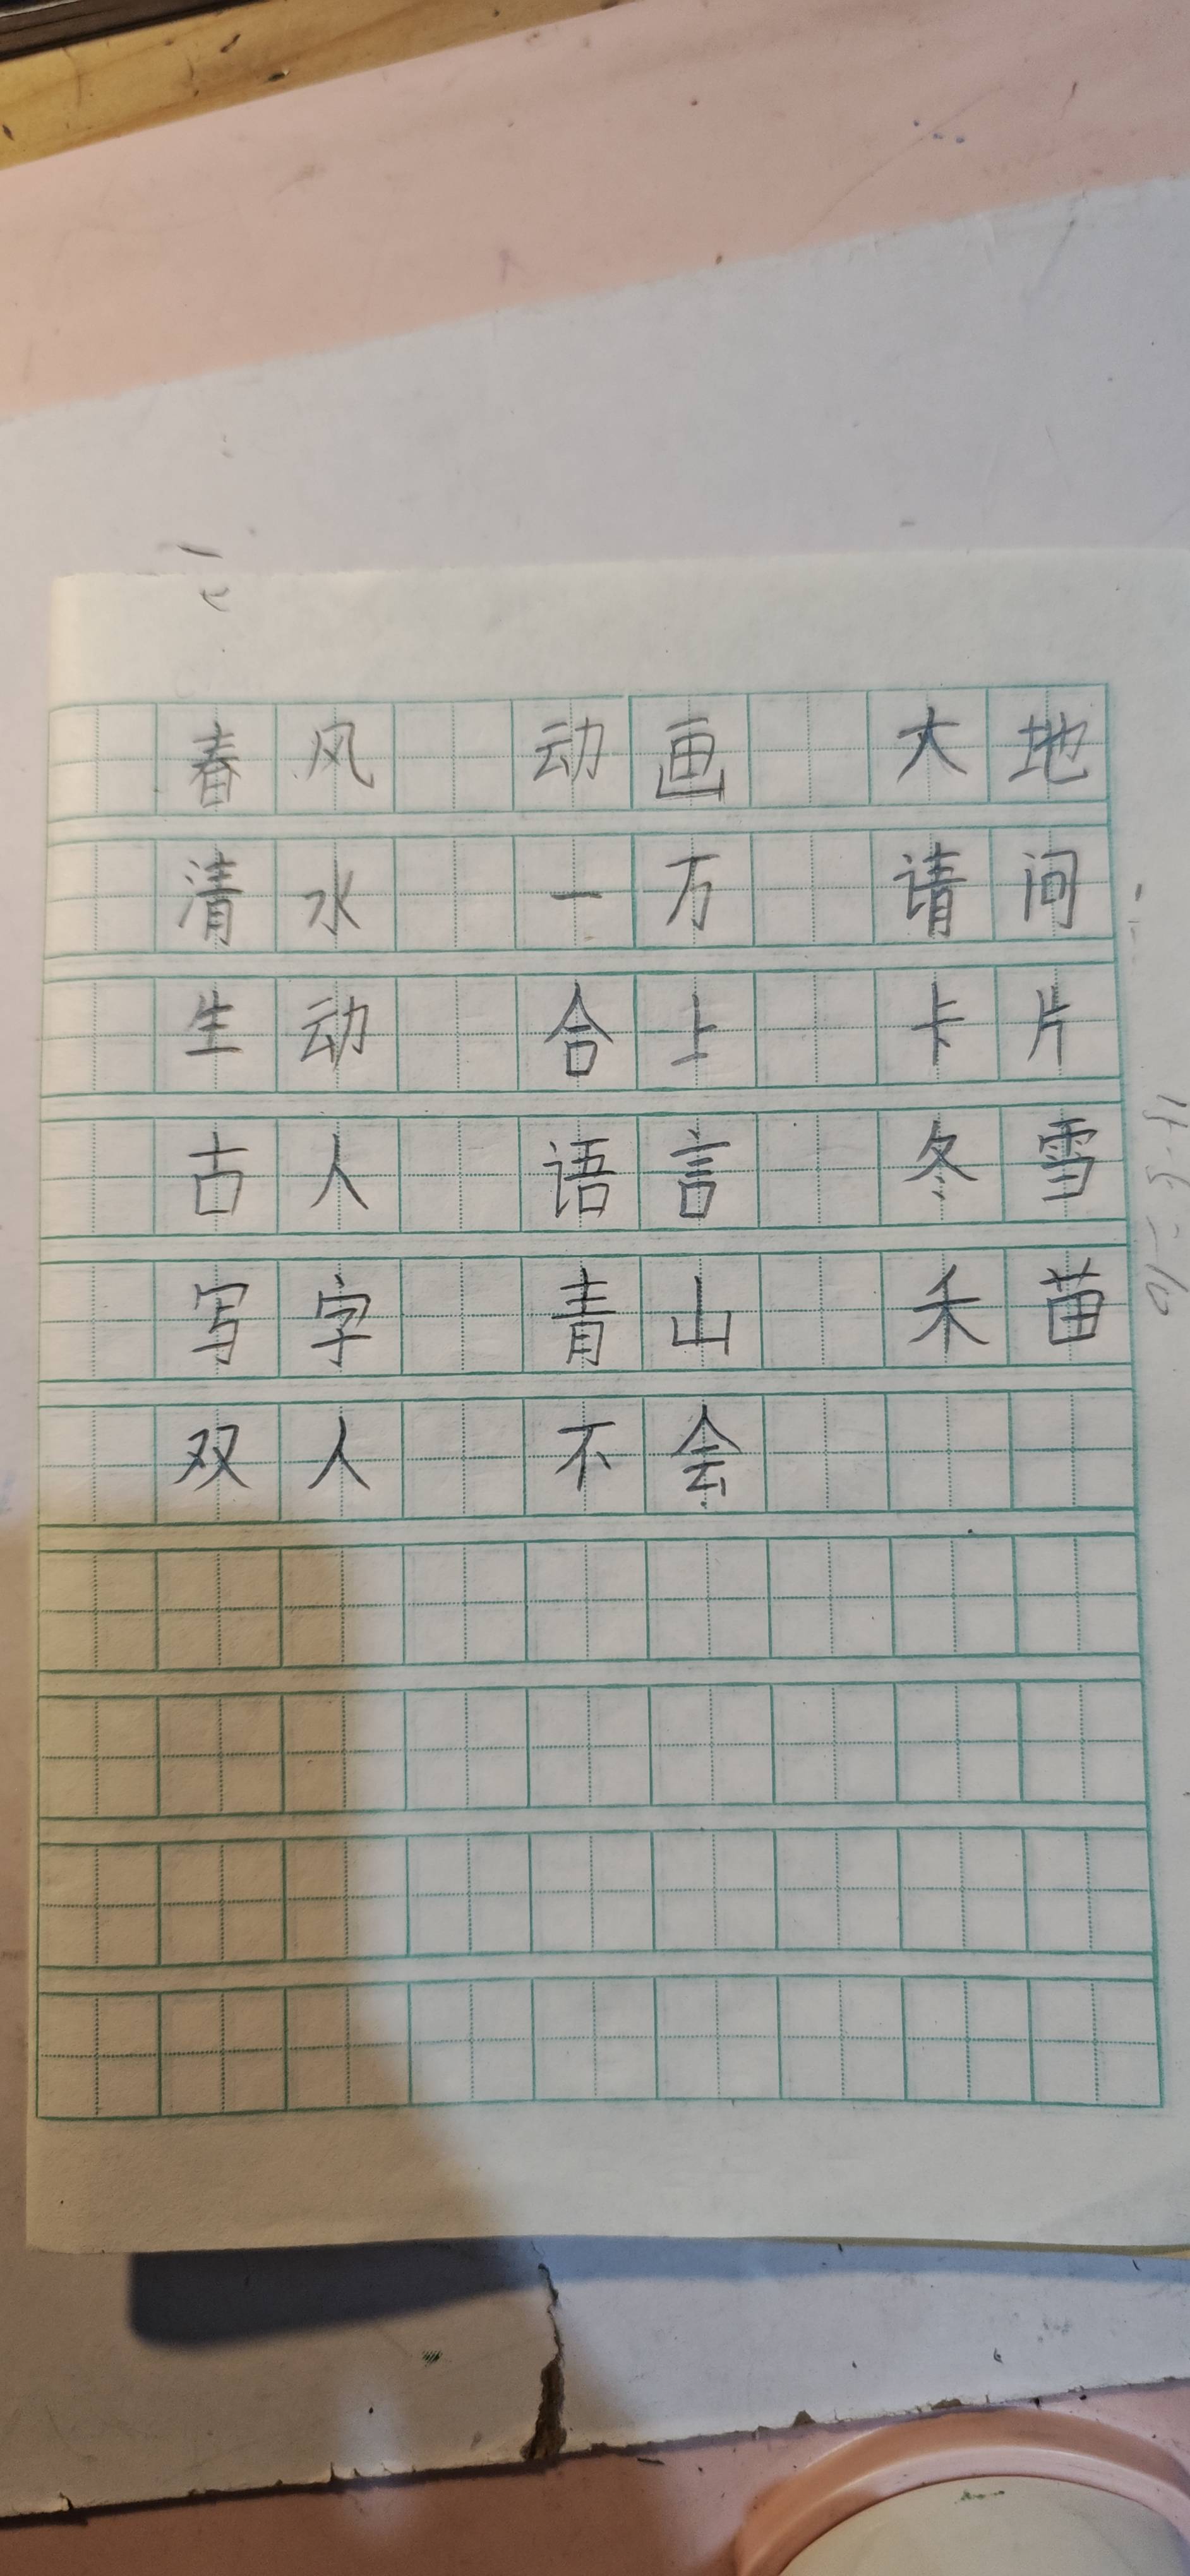 春风 动画 大地
清水 一万 请问
生动 合上 卡片
古人 语言 冬雪
写字 青山 禾苗
双人 不会